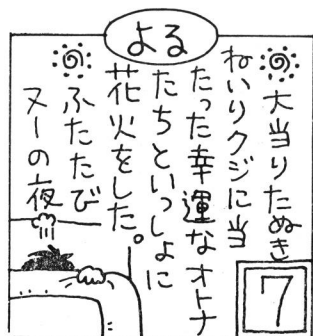 よる
大当りたぬき
ねいりクジに当
たった幸運なオトナ
たちといっしょに
花火をした。
ふたたび
ヌーの夜
7